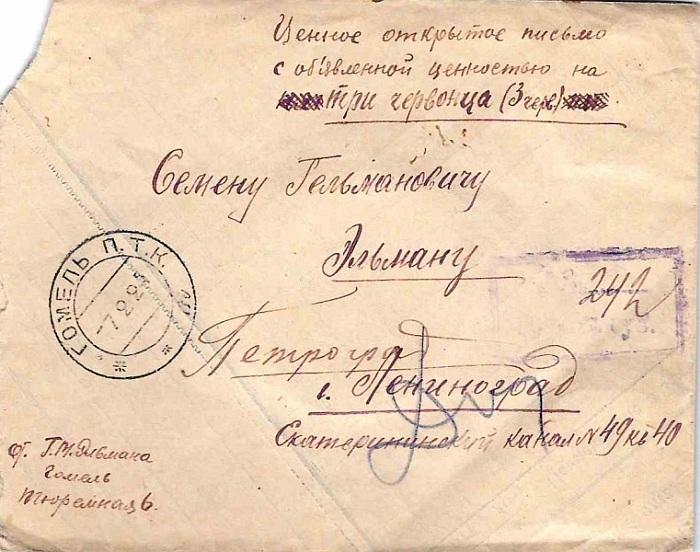 Ценное открытое письмо
с объявленной ценностью на
три червонца (3 черв)
Семену Гельмановичу
Эльману
ГОМЕЛЬ П.Т.К.
242
Петроград
г. Лениноград
Екатерининский канал N 49 кв 40
от Г.М. Эльмана
Гомель
Тюремная 6.